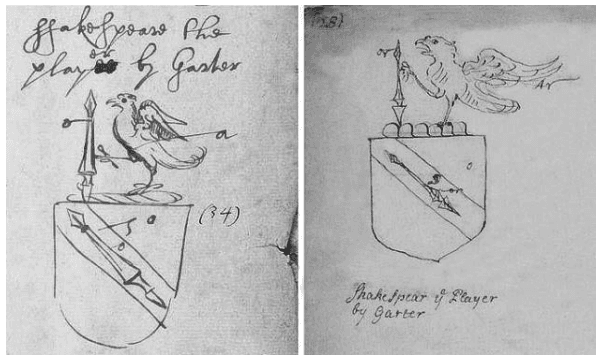 Shakespeare the
er
player by Garter
o
a
(34)
s
o
o
(28)
or
Ar
o
s
or
Shakespear ye Player
by Garter